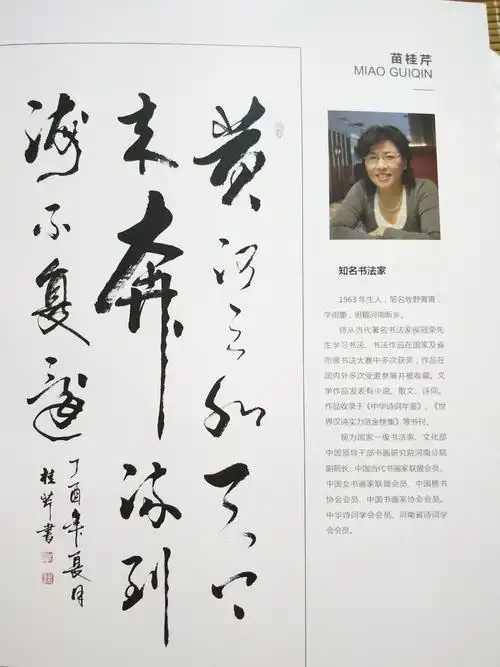 苗桂芹
MIAO GUIQIN
黄河之水天上
来奔流到
海不复
丁酉年夏月
桂芹書
知名书法家
1963年生人，笔名牧野青青，
字雨，祖籍河南新乡。
师从当代著名书法家侯冠荣先
生学习书法。书法作品在国家及省
市级书法大赛中多次获奖，作品在
国内外多次受邀参展并被收藏。文
学作品发表有小说、散文、诗词。
作品收录于《中华诗词年鉴》、《世
界汉诗实力派金榜集》等书刊。
现为国家一级书法家、文化部
中国领导干部书画研究院河南分院
副院长、中国当代书画家联盟会员、
中国女书画家联盟会员、中国榜书
协会会员、中国书画家协会会员。
中华诗词学会会员、河南省诗词学
会会员。